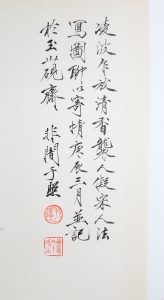 凌波乍放清香襲人擬宋人法
寫圖聊以寄情庚辰三月並記
於玉山硯齋 非闇于照